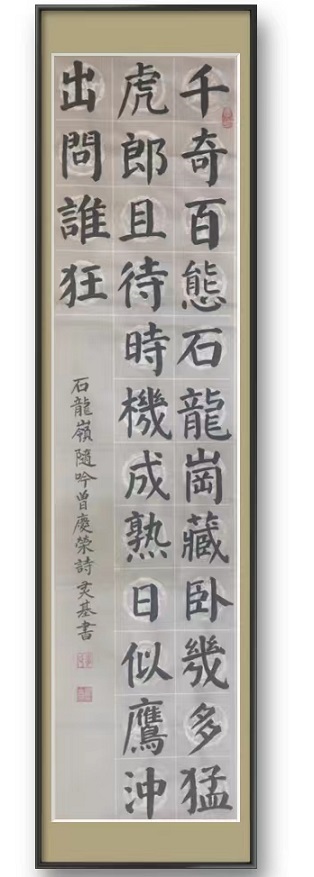 千奇百態石龍崗藏卧幾多猛
虎郎且待時機成熟日似鷹沖
出問誰狂
石龍嶺隨吟曾慶榮詩炎基書